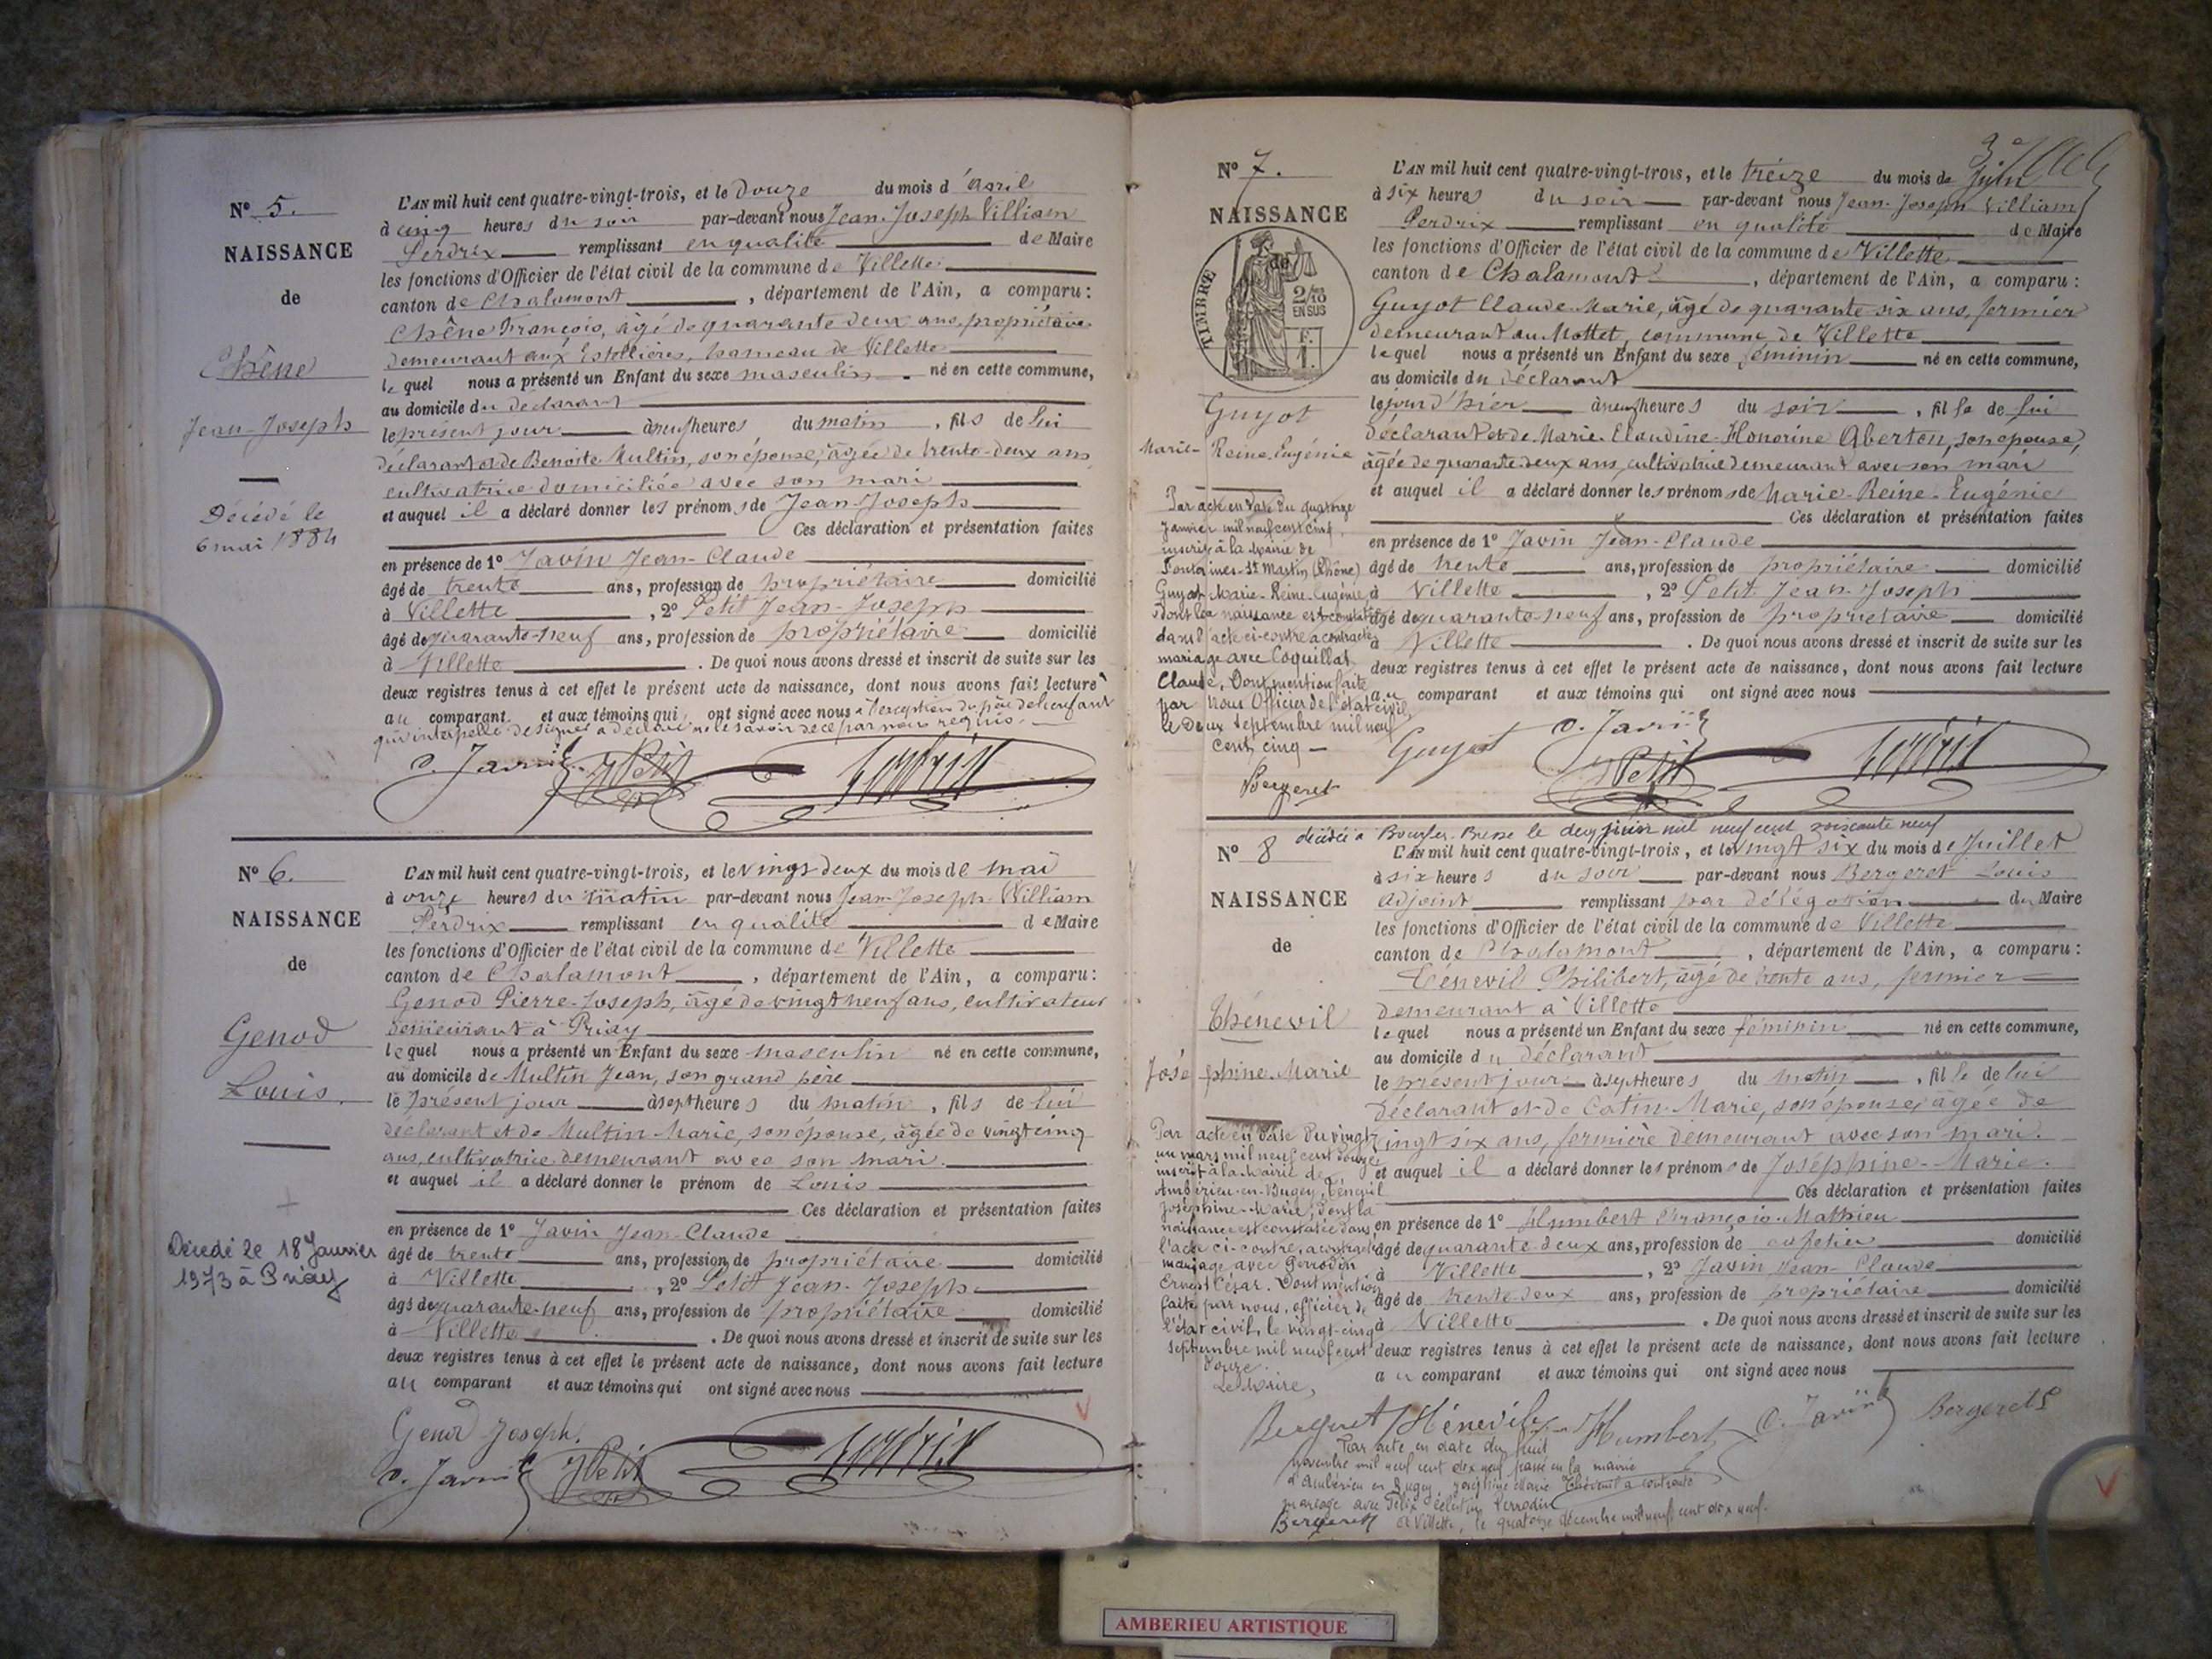 N° 5.
NAISSANCE
de
Chêne
Jean-Joseph
Décédé le
6 mai 1884
L'AN mil huit cent quatre-vingt-trois, et le Douze du mois d'Avril
à cinq heures du soir par-devant nous Jean-Joseph Villiam
Perdrix remplissant en qualité de Maire
les fonctions d'Officier de l'état civil de la commune de Villette
canton de Chalamont, département de l'Ain, a comparu:
Chêne François, âgé de quarante deux ans, propriétaire
demeurant aux Estollières, hameau de Villette
lequel nous a présenté un Enfant du sexe masculin né en cette commune,
au domicile du déclarant
le présent jour à neuf heures du matin, fils de lui
déclarant et de Benoite Multin, son épouse, âgée de trente-deux ans,
cultivatrice domiciliée avec son mari
et auquel il a déclaré donner les prénoms de Jean-Joseph
Ces déclaration et présentation faites
en présence de 1° Javin Jean-Claude
âgé de trente ans, profession de propriétaire domicilié
à Villette, 2° Petit Jean-Joseph
âgé de quarante-neuf ans, profession de propriétaire domicilié
à Villette. De quoi nous avons dressé et inscrit de suite sur les
deux registres tenus à cet effet le présent acte de naissance, dont nous avons fait lecture
au comparant et aux témoins qui ont signé avec nous à l'exception du père de l'enfant
qui interpellé de signer a déclaré ne le savoir de ce par nous requis.
C. Javin J Petit Perdrix
N° 6.
NAISSANCE
de
Genod
Louis.
Décédé le 18 Janvier
1973 à Priay
L'AN mil huit cent quatre-vingt-trois, et le vingt deux du mois de mai
à onze heures du matin par-devant nous Jean-Joseph William
Perdrix remplissant en qualité de Maire
les fonctions d'Officier de l'état civil de la commune de Villette
canton de Chalamont, département de l'Ain, a comparu:
Genod Pierre-Joseph, âgé de vingt neuf ans, cultivateur
demeurant à Priay
lequel nous a présenté un Enfant du sexe masculin né en cette commune,
au domicile de Multin Jean, son grand père
le présent jour à sept heures du matin, fils de lui
déclarant et de Multin Marie, son épouse, âgée de vingt cinq
ans, cultivatrice demeurant avec son mari.
et auquel il a déclaré donner le prénom de Louis
Ces déclaration et présentation faites
en présence de 1° Javin Jean-Claude
âgé de trente ans, profession de propriétaire domicilié
à Villette, 2° Petit Jean-Joseph
âgé de quarante-neuf ans, profession de propriétaire domicilié
à Villette. De quoi nous avons dressé et inscrit de suite sur les
deux registres tenus à cet effet le présent acte de naissance, dont nous avons fait lecture
au comparant et aux témoins qui ont signé avec nous
Genod Joseph.
C. Javin J Petit Perdrix
N° 7.
NAISSANCE
de
TIMBRE
2/10
EN SUS
F.
1.
Guyot
Marie-Reine-Eugénie
Par acte en date du quatorze
Janvier mil neuf cent cinq,
inscrit à la Mairie de
Fontaines-St Martin (Rhône)
Guyot Marie-Reine-Eugénie,
dont la naissance est constatée
dans l'acte ci-contre a contracté
mariage avec Coquillat
Claude, Dont mention faite
par Nous Officier de l'état civil,
le Deux Septembre mil neuf
cent cinq
Bergeret
L'AN mil huit cent quatre-vingt-trois, et le treize du mois de Juin
à six heures du soir par-devant nous Jean-Joseph William
Perdrix remplissant en qualité de Maire
les fonctions d'Officier de l'état civil de la commune de Villette
canton de Chalamont, département de l'Ain, a comparu:
Guyot Claude-Marie, âgé de quarante-six ans, fermier
demeurant au Mottet, commune de Villette
lequel nous a présenté un Enfant du sexe féminin né en cette commune,
au domicile du déclarant
le jour d'hier à neuf heures du soir, fille de lui
déclarant et de Marie-Claudine-Honorine Aberton, son épouse,
âgée de quarante deux ans, cultivatrice demeurant avec son mari
et auquel il a déclaré donner les prénoms de Marie-Reine-Eugénie
Ces déclaration et présentation faites
en présence de 1° Javin Jean-Claude
âgé de trente ans, profession de propriétaire domicilié
à Villette, 2° Petit Jean-Joseph
âgé de quarante-neuf ans, profession de propriétaire domicilié
à Villette. De quoi nous avons dressé et inscrit de suite sur les
deux registres tenus à cet effet le présent acte de naissance, dont nous avons fait lecture
au comparant et aux témoins qui ont signé avec nous
Guyot C. Javin
J Petit Perdrix
décédée à Bourg-en-Bresse le deux juin mil neuf cent soixante neuf
N° 8
NAISSANCE
de
Thénevil
Joséphine-Marie
Par acte en date du vingt
un mars mil neuf cent douze
inscrit à la Mairie de
Ambérieu-en-Bugey, Ténevil
Joséphine-Marie, dont la
naissance est constatée dans
l'acte ci-contre, a contracté
mariage avec Perrodin
Ernest César. Dont mention
faite par nous, officier de
l'état civil, le vingt-cinq
septembre mil neuf cent
douze.
Le Maire,
Bergeret
L'AN mil huit cent quatre-vingt-trois, et le vingt six du mois de Juillet
à six heures du soir par-devant nous Bergeret Louis
adjoint remplissant par délégation du Maire
les fonctions d'Officier de l'état civil de la commune de Villette
canton de Chalamont, département de l'Ain, a comparu:
Ténevil Philibert, âgé de trente ans, fermier
demeurant à Villette
lequel nous a présenté un Enfant du sexe féminin né en cette commune,
au domicile du déclarant
le présent jour à sept heures du matin, fille de lui
déclarant et de Catin Marie, son épouse, âgée de
vingt six ans, fermière demeurant avec son mari.
et auquel il a déclaré donner les prénoms de Joséphine-Marie.
Ces déclaration et présentation faites
en présence de 1° Humbert François-Mathieu
âgé de quarante-deux ans, profession de cafetier domicilié
à Villette, 2° Javin Jean-Claude
âgé de trente-deux ans, profession de propriétaire domicilié
à Villette. De quoi nous avons dressé et inscrit de suite sur les
deux registres tenus à cet effet le présent acte de naissance, dont nous avons fait lecture
au comparant et aux témoins qui ont signé avec nous
Thénevil Humbert C. Javin Bergeret
Par acte en date du huit
novembre mil neuf cent dix neuf passé en la mairie
d'Ambérieu en Bugey, Joséphine Marie Thénevil a contracté
mariage avec Félix Célestin Perrodin
Bergeret à Villette, le quatorze décembre mil neuf cent dix neuf.
AMBERIEU ARTISTIQUE